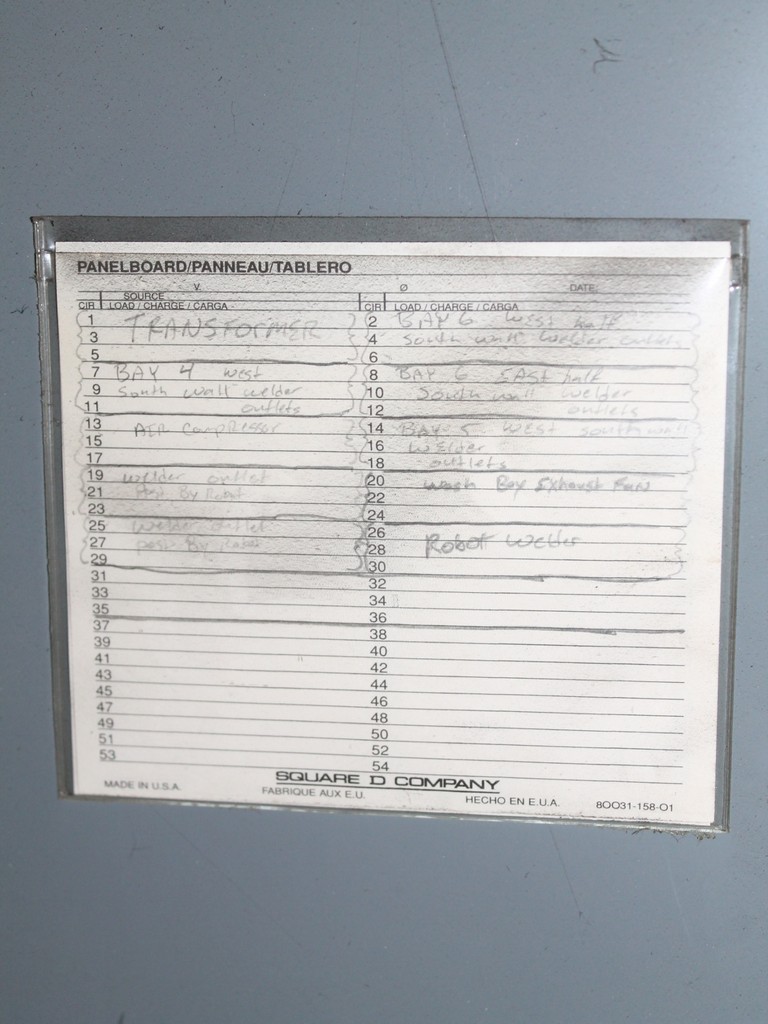 PANELBOARD/PANNEAU/TABLERO
V. Ø DATE
SOURCE
CIR LOAD / CHARGE / CARGA CIR LOAD / CHARGE / CARGA
1 TRANSFORMER 2 BAY 6 West half
3 4 South wall welder outlets
5 6
7 BAY 4 West 8 BAY 6 EAST half
9 South wall welder 10 South wall welder
11 outlets 12 outlets
13 AIR Compressor 14 BAY 5 WEST South wall
15 16 WElder
17 18 outlets
19 welder outlet 20 wash Bay Exhaust Fan
21 Post By Robot 22
23 24
25 Welder outlet 26
27 post By Robot 28 Robot Welder
29 30
31 32
33 34
35 36
37 38
39 40
41 42
43 44
45 46
47 48
49 50
51 52
53 54
SQUARE D COMPANY
MADE IN U.S.A. FABRIQUE AUX E.U. HECHO EN E.U.A. 80031-158-01